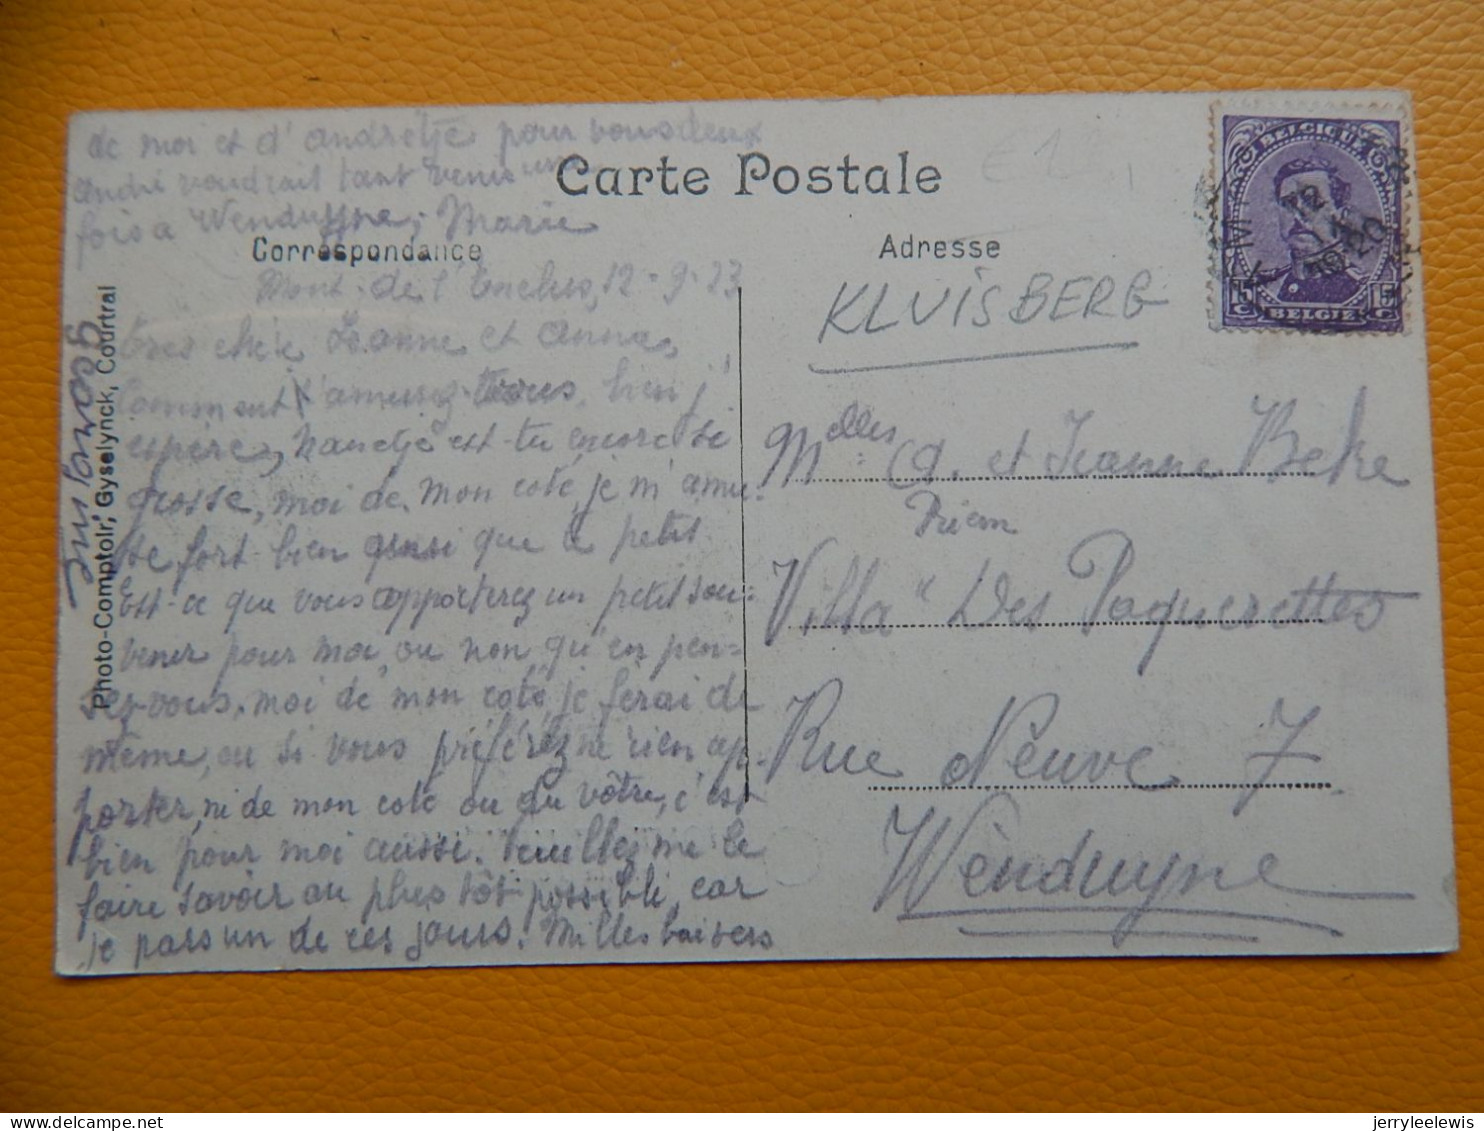 de moi et d'andretje pour vous deux
André voudrait tant venir une
fois a Wenduyne, Marie
Carte Postale
Correspondance
Adresse
Mont-de-l'Enclus, 12-9-23
KLUISBERG
très chère Jeanne et Anna,
Comment s'amusez-vous, bien j'
espère, Nanetje est-tu encore si
grosse, moi de mon coté, je m'amu-
se fort bien ainsi que le petit
Est-ce que vous apporterez un petit sou-
venir pour moi, ou non, qu'en pen-
sez-vous, moi de mon coté je ferai de
même, ou si vous préférez ne rien ap-
porter, ni de mon coté ou du vôtre, c'est
bien pour moi aussi. Veuillez me le
faire savoir au plus tôt possible, car
je pars un de ces jours. Milles baisers
Photo-Comptoir, Gyselynck, Courtrai
BELGIQUE
15 C
15 C
BELGIE
Melles A. et Jeanne Beke
Villa "Des Paquerettes
Rue Neuve 7
Wènduyne
jerryleelewis